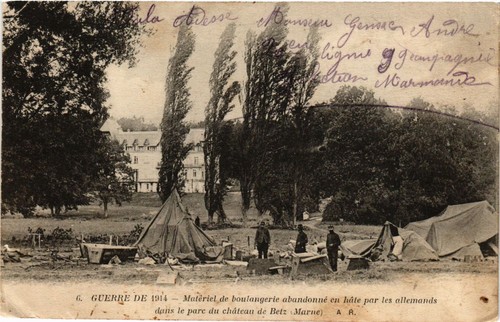 la Adresse Monsieur Gensac André
en ligne 9 Compagnie
Marmande
6. GUERRE DE 1914 - Matériel de boulangerie abandonné en hâte par les allemands
dans le parc du château de Betz (Marne) A R.